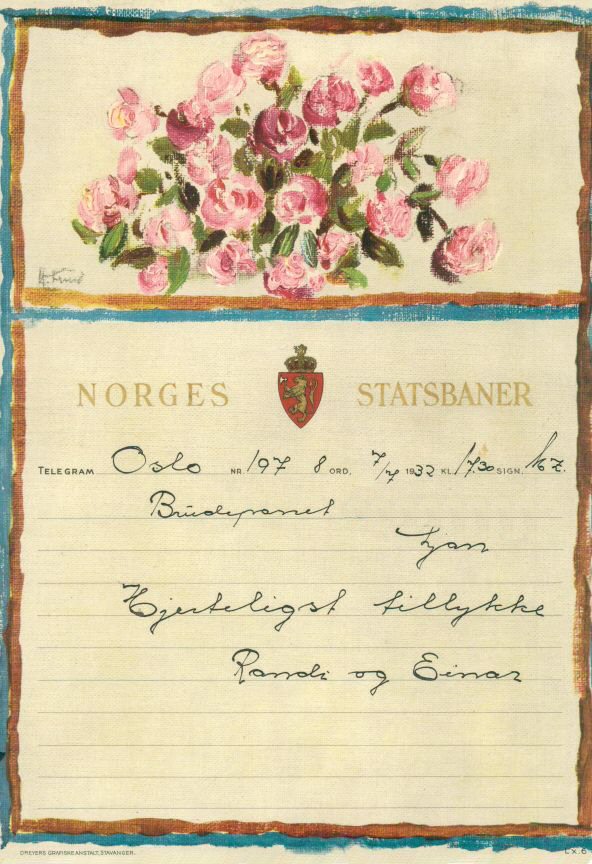 NORGES STATSBANER
TELEGRAM Oslo NR. 197 8 ORD. 7/7 1932 KL. 17.30 SIGN.
Brudeparret
Ljan
Hjerteligst tillykke
Randi og Einar
DREYERS GRAFISKE ANSTALT, STAVANGER.
Lx. 6